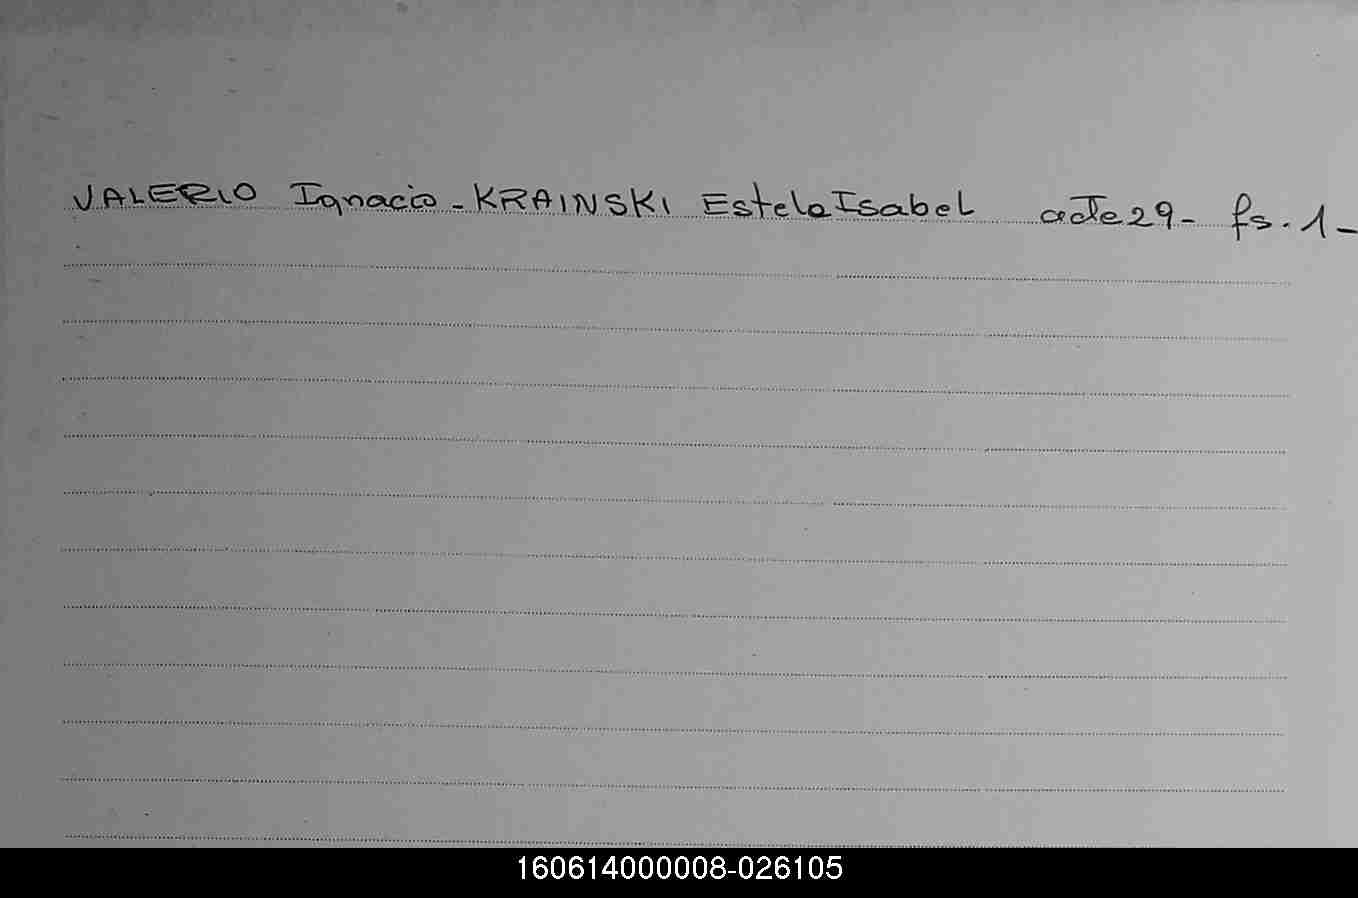 VALERIO Ignacio - KRAINSKI Estela Isabel acta 29 - fs. 1 -
160614000008-026105